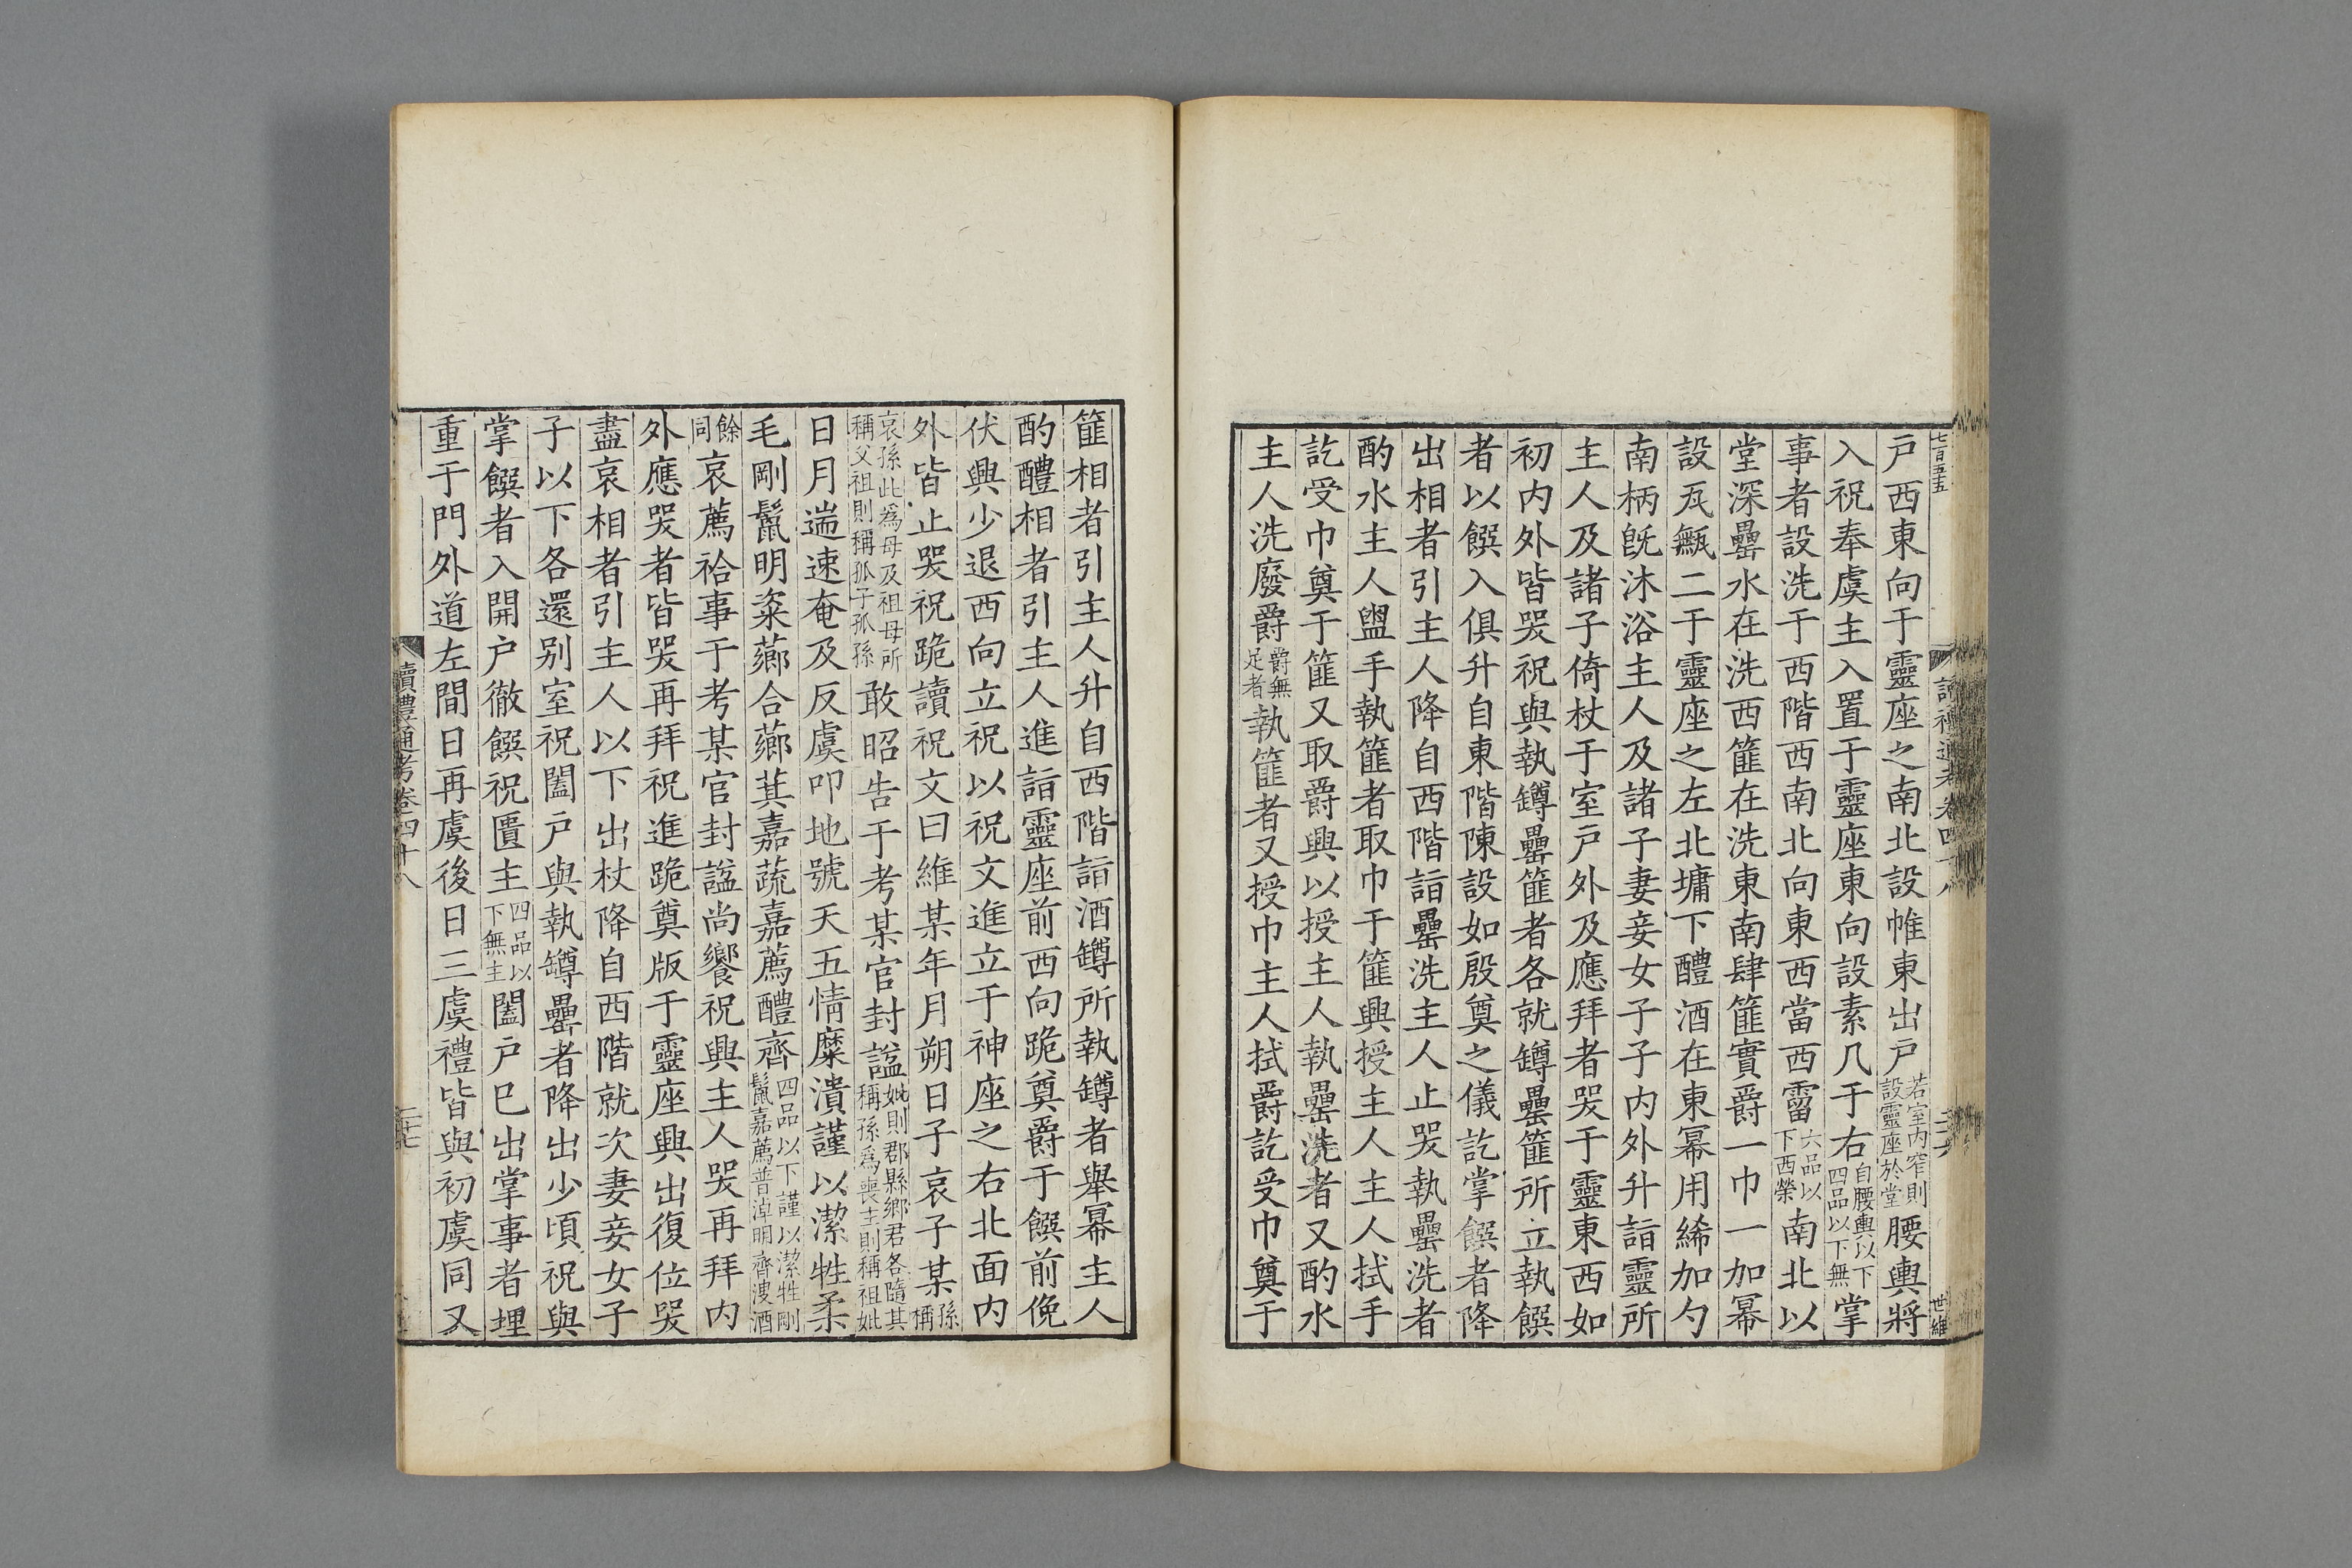 七百五五
讀禮通考卷四十八
二十六
世維
戸西東向于靈座之南北設帷東出戸若室内窄則設靈座於堂腰輿將
入祝奉虞主入置于靈座東向設素几于右自腰輿以下四品以下無掌
事者設洗于西階西南北向東西當西霤六品以下西榮南北以
堂深罍水在洗西篚在洗東南肆篚實爵一巾一加冪
設瓦甒二于靈座之左北墉下醴酒在東冪用綌加勺
南柄旣沐浴主人及諸子妻妾女子子内外升詣靈所
主人及諸子倚杖于室戸外及應拜者哭于靈東西如
初内外皆哭祝與執罇罍篚者各就罇罍篚所立執饌
者以饌入俱升自東階陳設如殷奠之儀訖掌饌者降
出相者引主人降自西階詣罍洗主人止哭執罍洗者
酌水主人盥手執篚者取巾于篚興授主人主人拭手
訖受巾奠于篚又取爵興以授主人執罍洗者又酌水
主人洗廢爵爵無足者執篚者又授巾主人拭爵訖受巾奠于
篚相者引主人升自西階詣酒罇所執罇者舉冪主人
酌醴相者引主人進詣靈座前西向跪奠爵于饌前俛
伏興少退西向立祝以祝文進立于神座之右北面内
外皆止哭祝跪讀祝文曰維某年月朔日子哀子某孫稱
哀孫此為母及祖母所稱父祖則稱孤子孤孫敢昭告于考某官封諡妣則郡縣鄉君各隨其稱孫為喪主則稱祖妣
日月遄速奄及反虞叩地號天五情糜潰謹以潔牲柔
毛剛鬛明粢薌合薌萁嘉蔬嘉薦醴齊四品以下謹以潔牲剛鬛嘉薦普淖明齊溲酒
餘同哀薦祫事于考某官封諡尚饗祝興主人哭再拜内
外應哭者皆哭再拜祝進跪奠版于靈座興出復位哭
盡哀相者引主人以下出杖降自西階就次妻妾女子
子以下各還别室祝闔戸與執罇罍者降出少頃祝與
掌饌者入開戸徹饌祝匱主四品以下無主闔戸巳出掌事者埋
重于門外道左間日再虞後日三虞禮皆與初虞同又
讀禮通考卷四十八
二十七